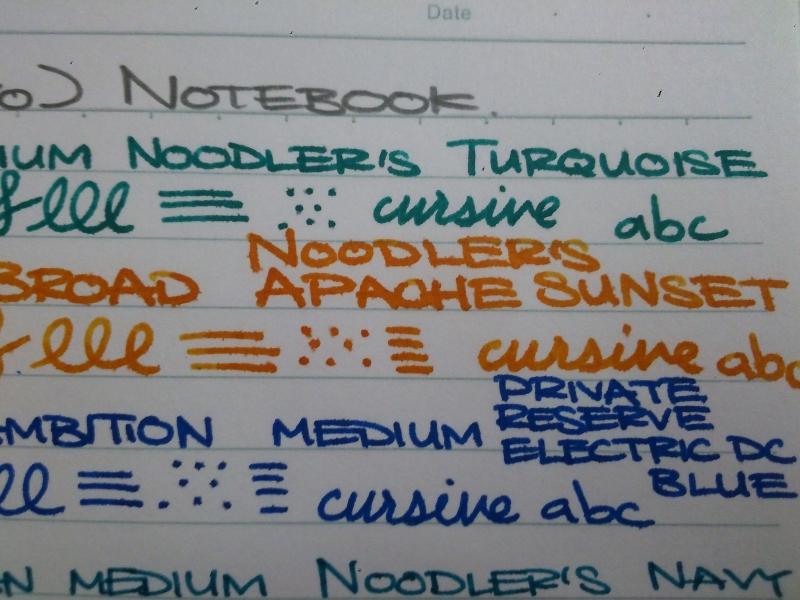 Date
o) NOTEBOOK.
IUM NOODLER'S TURQUOISE
flll cursive abc
NOODLER'S
BROAD APACHE SUNSET
lll cursive abc
PRIVATE
AMBITION MEDIUM RESERVE
ELECTRIC DC
BLUE
ll cursive abc
N MEDIUM NOODLER'S NAVY